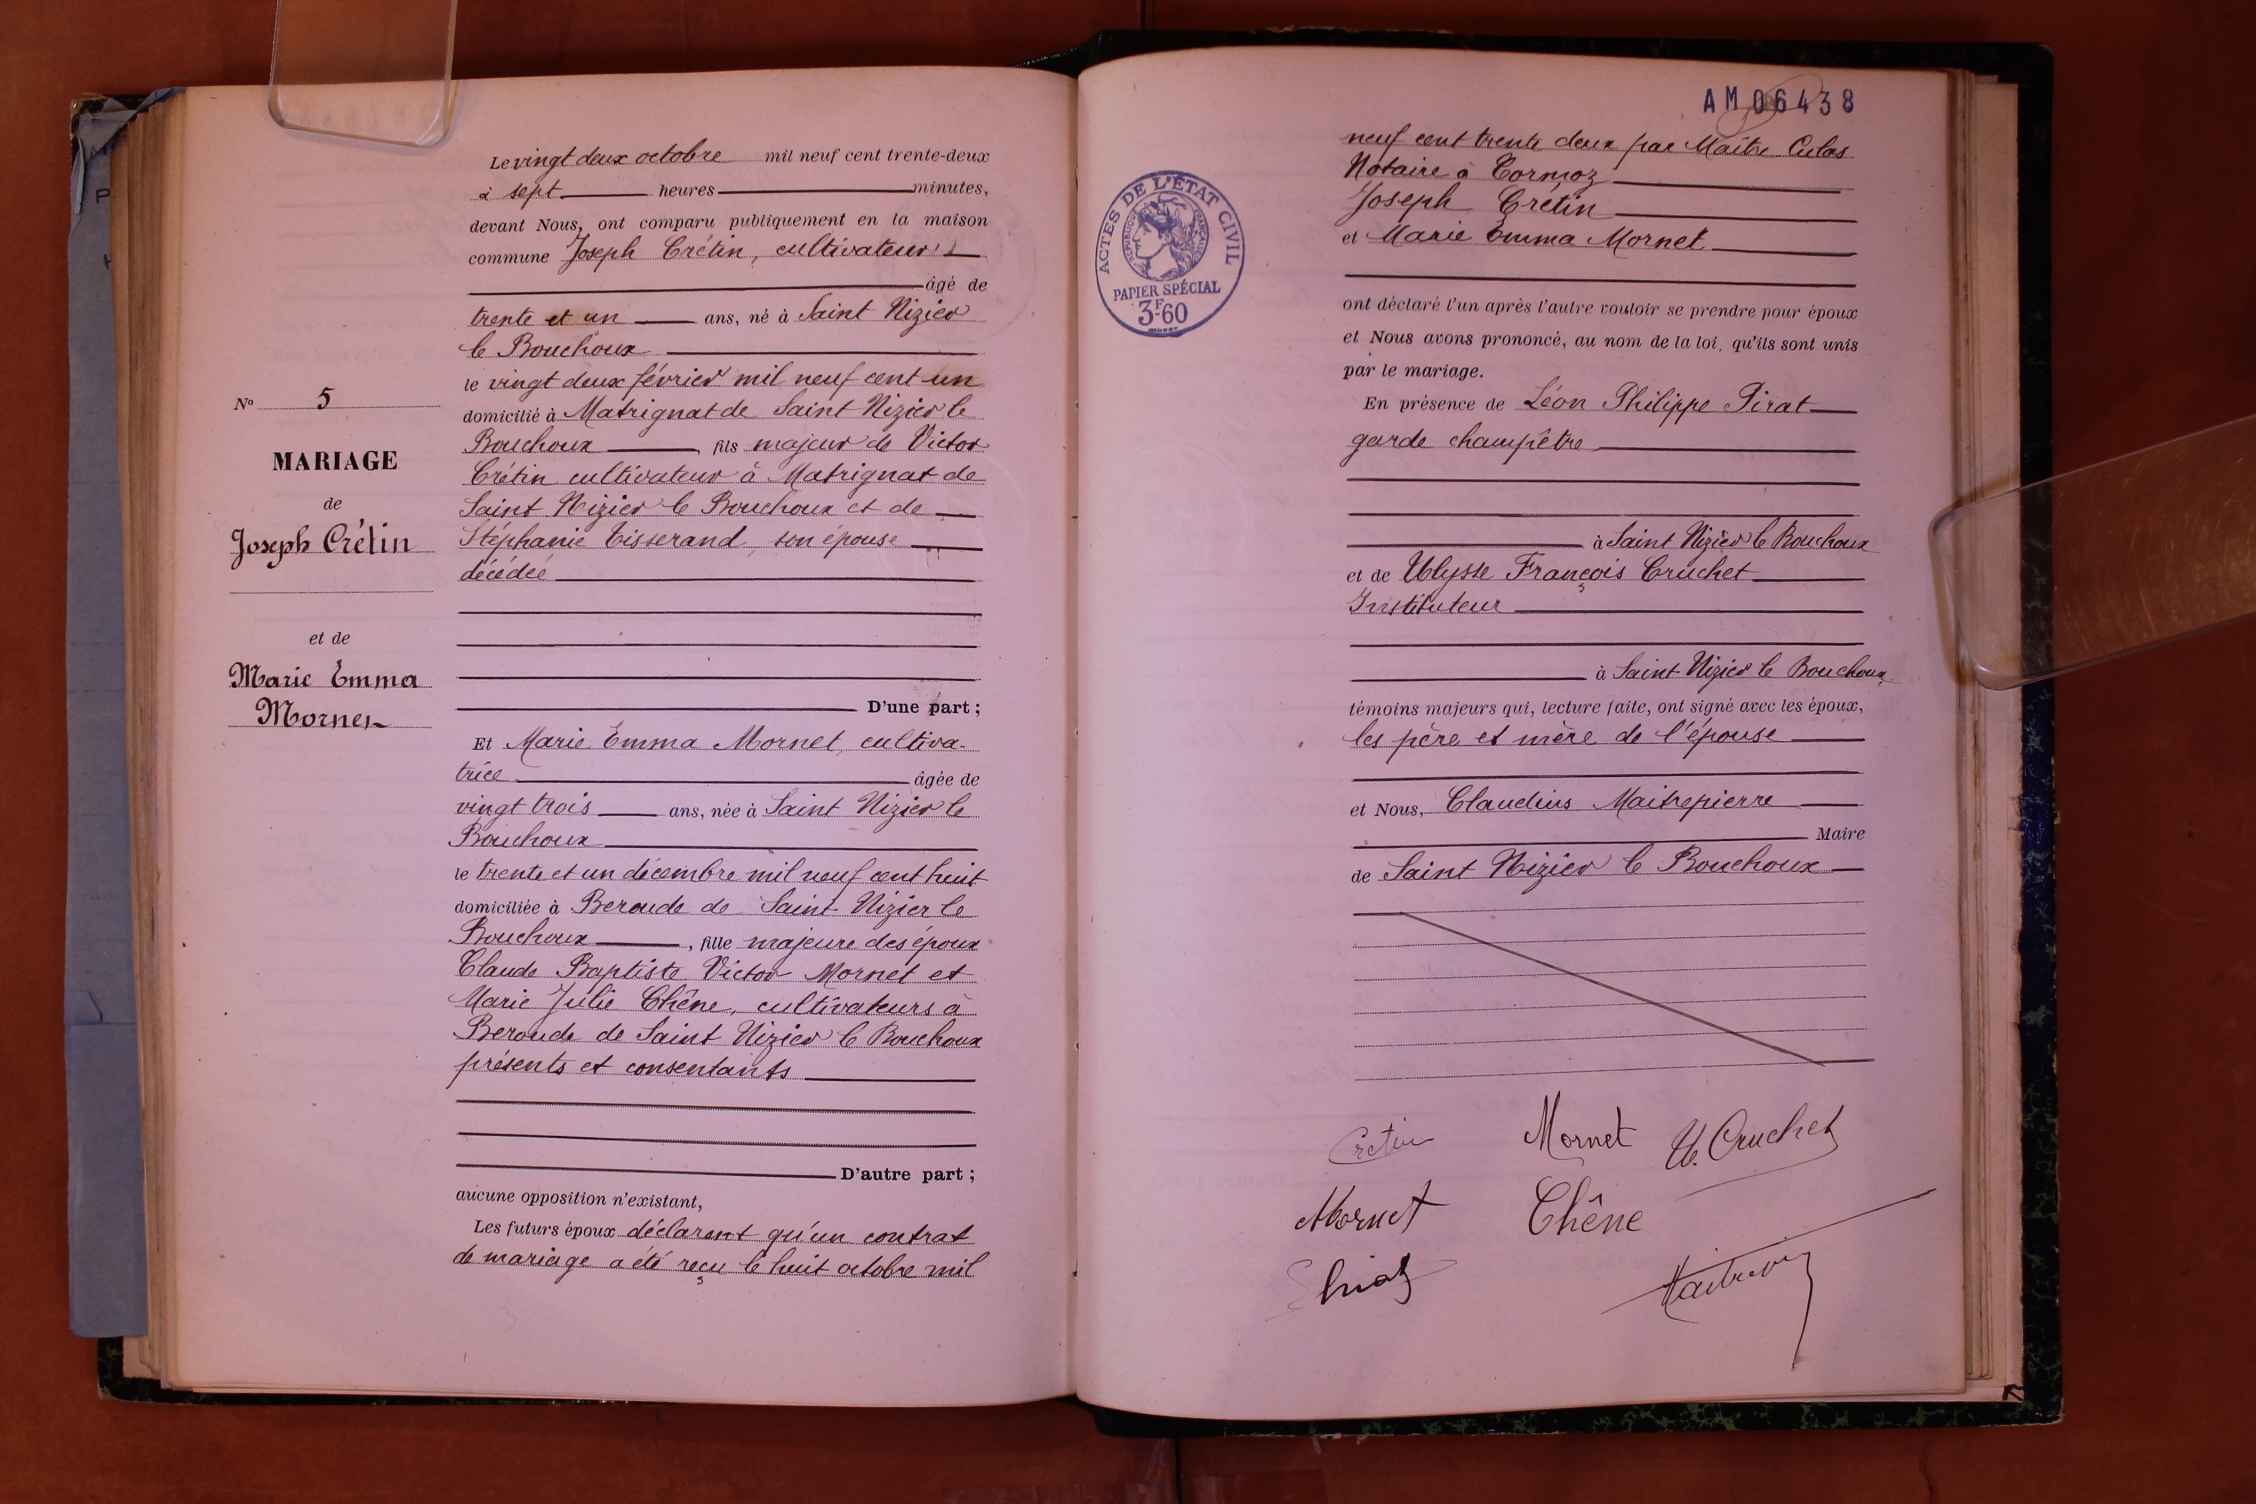 Le vingt deux octobre mil neuf cent trente-deux
à sept heures minutes,
devant Nous, ont comparu publiquement en la maison
commune Joseph Crétin, cultivateur
âgé de
trente et un ans, né à Saint Nizier
le Bouchoux
le vingt deux février mil neuf cent un
domicilié à Matrignat de Saint Nizier le
Bouchoux, fils majeur de Victor
Crétin cultivateur à Matrignat de
Saint Nizier le Bouchoux et de
Stéphanie Tisserand, son épouse
décédée
D'une part ;
Et Marie Emma Mornet, cultiva-
trice âgée de
vingt trois ans, née à Saint Nizier le
Bouchoux
le trente et un décembre mil neuf cent huit
domiciliée à Beroude de Saint Nizier le
Bouchoux, fille majeure des époux
Claude Baptiste Victor Mornet et
Marie Julie Chêne, cultivateurs à
Beroude de Saint Nizier le Bouchoux
présents et consentants
D'autre part ;
aucune opposition n'existant,
Les futurs époux déclarent qu'un contrat
de mariage a été reçu le huit octobre mil
No 5
MARIAGE
de
Joseph Crétin
et de
Marie Emma
Mornet
AM 06438
ACTES DE L'ÉTAT CIVIL
RÉPUBLIQUE FRANÇAISE
PAPIER SPÉCIAL
3F60
neuf cent trente deux par Maître Culas
Notaire à Cormoz
Joseph Crétin
et Marie Emma Mornet
ont déclaré l'un après l'autre vouloir se prendre pour époux
et Nous avons prononcé, au nom de la loi, qu'ils sont unis
par le mariage.
En présence de Léon Philippe Pirat
garde champêtre
à Saint Nizier le Bouchoux
et de Ulysse François Cruchet
Instituteur
à Saint Nizier le Bouchoux
témoins majeurs qui, lecture faite, ont signé avec les époux,
les père et mère de l'épouse
et Nous, Claudius Maitrepierre
Maire
de Saint Nizier le Bouchoux
Cretin Mornet U. Cruchet
Mornet Chêne